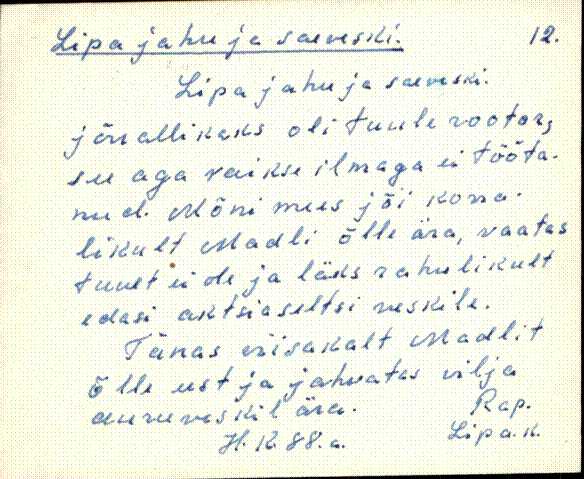 Lipa jahu ja saeveski. 12.
Lipa jahu ja saeveski.
jõuallikaks oli tuule rootor,
see aga vaikse ilmaga ei tööta-
nud. Mõni mees jõi korra-
likult Madli õlle ära, vaatas
tuult ei ole ja läks rahulikult
edasi aktsiaseltsi veskile.
Tänas viisakalt Madlit
õlle eest ja jahvatas vilja
auruveskil ära. Rap.
H.K. 88.a. Lipa.k.